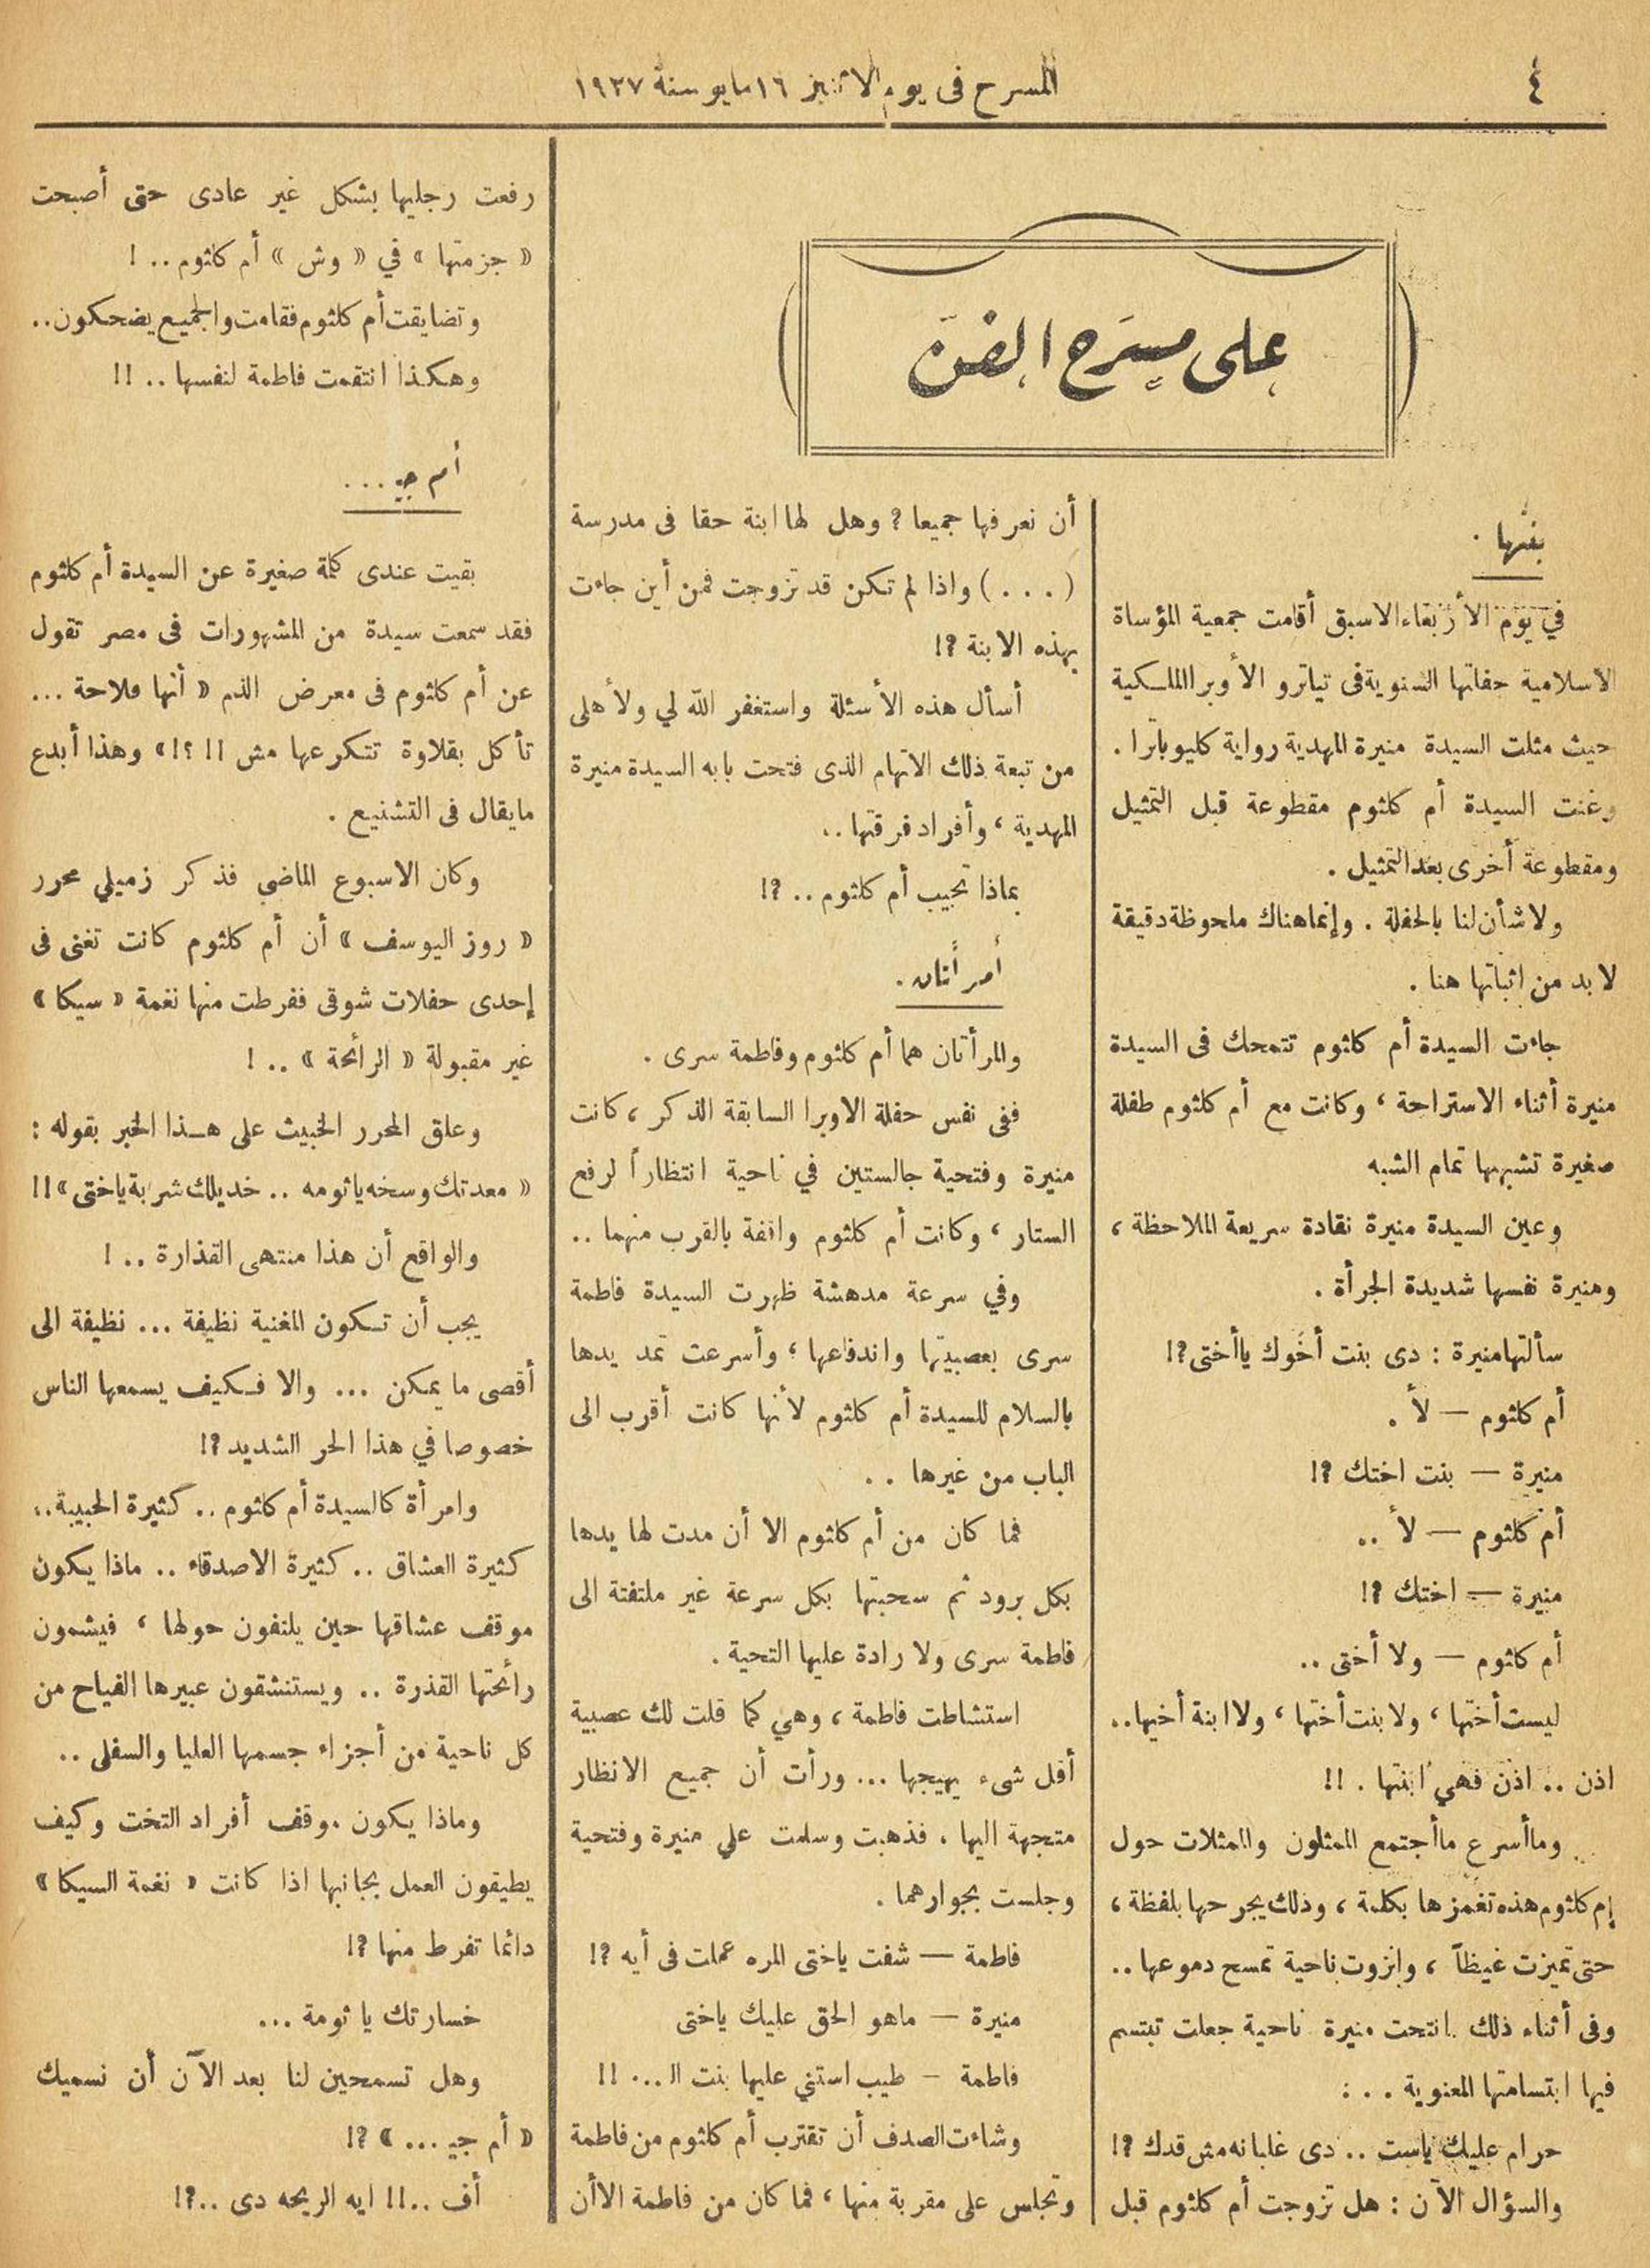 ٤
المسرح فى يوم الاثنين ١٦ مايو سنة ١٩٢٧
على مسرح الفن
بنتها .
في يوم الأربعاء الاسبق أقامت جمعية المؤساة
الاسلامية حفلتها السنوية فى تياترو الأوبرا الملكية
حيث مثلت السيدة منيرة المهدية رواية كليوباترا .
وغنت السيدة أم كلثوم مقطوعة قبل التمثيل
ومقطوعة أخرى بعد التمثيل .
ولا شأن لنا بالحفلة . وإنما هناك ملحوظة دقيقة
لا بد من اثباتها هنا .
جاءت السيدة أم كلثوم تتمحك فى السيدة
منيرة أثناء الاستراحة ، وكانت مع أم كلثوم طفلة
صغيرة تشبهها تمام الشبه
وعين السيدة منيرة نقادة سريعة الملاحظة ،
ومنيرة نفسها شديدة الجرأة .
سألتها منيرة : دى بنت أخوك يا أختى ?!
أم كلثوم — لأ .
منيرة — بنت اختك ?!
أم كلثوم — لأ ..
منيرة — اختك ?!
أم كلثوم — ولا أختى ..
ليست أختها ، ولا بنت أختها ، ولا ابنة أخيها ..
اذن .. اذن فهي ابنتها . !!
وما أسرع ما أجتمع الممثلون والممثلات حول
إم كلثوم هذه تغمزها بكلمة ، وذلك يجرحها بلفظة ،
حتى تميزت غيظاً ، وانزوت ناحية تمسح دموعها ..
وفى أثناء ذلك انتحت منيرة ناحية جعلت تبتسم
فيها ابتسامتها المعنوية . . . :
حرام عليك ياست .. دى غلبانه مش قدك ?!
والسؤال الآن : هل تزوجت أم كلثوم قبل
أن نعرفها جميعا ? وهل لها ابنة حقا فى مدرسة
( . . . ) واذا لم تكن قد تزوجت فمن أين جاءت
بهذه الابنة ?!
أسأل هذه الأسئلة واستغفر الله لي ولأهلى
من تبعة ذلك الاتهام الذى فتحت بابه السيدة منيرة
المهدية ، وأفراد فرقتها ..
بماذا تجيب أم كلثوم .. ?!
أمرأتان .
والمرأتان هما أم كلثوم وفاطمة سرى .
ففى نفس حفلة الاوبرا السابقة الذكر ، كانت
منيرة وفتحية جالستين في ناحية انتظاراً لرفع
الستار ، وكانت أم كلثوم واقفة بالقرب منهما ..
وفي سرعة مدهشة ظهرت السيدة فاطمة
سرى بعصبيتها واندفاعها ، وأسرعت تمد يدها
بالسلام للسيدة أم كلثوم لأنها كانت أقرب الى
الباب من غيرها . .
فما كان من أم كلثوم الا أن مدت لها يدها
بكل برود ثم سحبتها بكل سرعة غير ملتفتة الى
فاطمة سرى ولا رادة عليها التحية .
استشاطت فاطمة ، وهي كما قلت لك عصبية
أقل شىء يهيجها ... ورأت أن جميع الانظار
متجهة اليها ، فذهبت وسلمت علي منيرة وفتحية
وجلست بجوارهما .
فاطمة — شفت ياختى المره عملت فى أيه ?!
منيرة — ماهو الحق عليك ياختى
فاطمة — طيب استني عليها بنت الـ ... !!
وشاءت الصدف أن تقترب أم كلثوم من فاطمة
وتجلس على مقربة منها ، فما كان من فاطمة الا أن
رفعت رجليها بشكل غير عادى حتى أصبحت
« جزمتها » في « وش » أم كلثوم .. !
وتضايقت أم كلثوم فقامت والجميع يضحكون ..
وهكذا انتقمت فاطمة لنفسها .. !!
أم جيـ ...
بقيت عندى كلمة صغيرة عن السيدة أم كلثوم
فقد سمعت سيدة من المشهورات فى مصر تقول
عن أم كلثوم فى معرض الذم « أنها فلاحة ...
تأكل بقلاوة تتكرعها مش !! ؟!» وهذا أبدع
مايقال فى التشنيع .
وكان الاسبوع الماضي فذكر زميلي محرر
« روز اليوسف » أن أم كلثوم كانت تغنى فى
إحدى حفلات شوقى ففرطت منها نغمة « سيكا »
غير مقبولة « الرائحة » .. !
وعلق المحرر الخبيث على هـذا الخبر بقوله :
« معدتك وسخه ياثومه .. خديلك شربة ياختى »!!
والواقع أن هذا منتهى القذارة .. !
يجب أن تكون المغنية نظيفة ... نظيفة الى
أقصى ما يمكن ... والا فكيف يسمعها الناس
خصوصا في هذا الحر الشديد ?!
وامرأة كالسيدة أم كلثوم .. كثيرة الحبيبة ..
كثيرة العشاق .. كثيرة الاصدقاء .. ماذا يكون
موقف عشاقها حين يلتفون حولها ، فيشمون
رأئحتها القذرة .. ويستنشقون عبيرها الفياح من
كل ناحية من أجزاء جسمها العليا والسفلى ..
وماذا يكون موقف أفراد التخت وكيف
يطيقون العمل بجانبها اذا كانت « نغمة السيكا »
دائما تفرط منها ?!
خسارتك يا ثومة ...
وهل تسمحين لنا بعد الآن أن نسميك
« أم جيـ ... » ?!
أف ..!! ايه الريحه دى ..?!